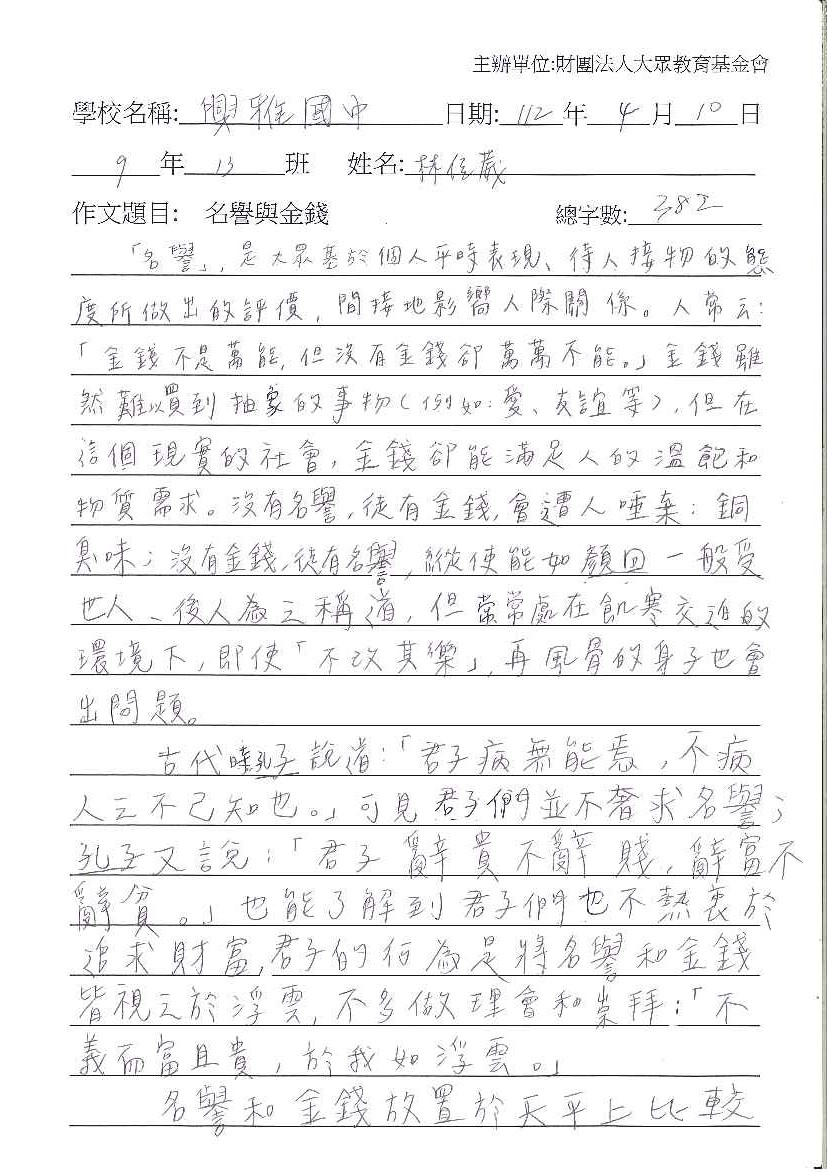 主辦單位:財團法人大眾教育基金會
學校名稱: 興雅國中 日期: 112 年 4 月 10 日
9 年 13 班 姓名: 林佳葳
作文題目: 名譽與金錢 總字數: 382
「名譽」,是大眾基於個人平時表現、待人接物的態
度所做出的評價,間接地影嚮人際關係。人常云:
「金錢不是萬能,但沒有金錢卻萬萬不能。」金錢雖
然難以買到抽象的事物(例如:愛、友誼等),但在
這個現實的社會,金錢卻能滿足人的溫飽和
物質需求。沒有名譽,徒有金錢,會遭人唾棄:銅
臭味;沒有金錢,徒有名譽,縱使能如顏回一般受
世人、後人為之稱道,但常常處在飢寒交迫的
環境下,即使「不改其樂」,再風骨的身子也會
出問題。
古代時孔子說道:「君子病無能焉,不病
人之不己知也。」可見君子們並不奢求名譽;
孔子又說:「君子辭貴不辭賤,辭富不
辭貧。」也能了解到君子們也不熱衷於
追求財富,君子的行為是將名譽和金錢
皆視之於浮雲,不多做理會和崇拜:「不
義而富且貴,於我如浮雲。」
名譽和金錢放置於天平上比較